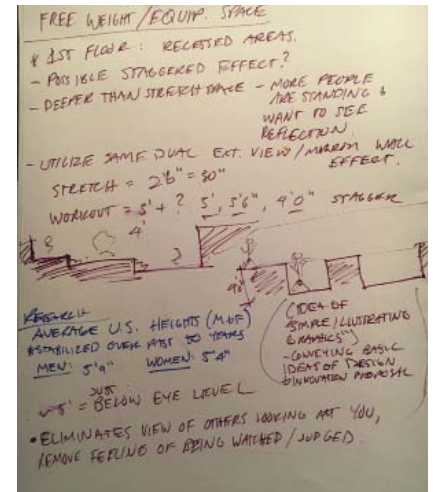 FREE WEIGHT/EQUIP. SPACE
* 1ST FLOOR: RECESSED AREAS.
- POSSIBLE STAGGERED EFFECT?
- DEEPER THAN STRETCH SPACE - MORE PEOPLE
ARE STANDING &
WANT TO SEE
REFLECTION.
- UTILIZE SAME DUAL EXT. VIEW/MIRROR WALL
EFFECT.
STRETCH = 2'6" = 30"
WORKOUT = 3' + ? 3', 3'6", 4'0" STAGGER
?
4'
?
RESEARCH
AVERAGE U.S. HEIGHTS (M&F)
*STABILIZED OVER PAST 50 YEARS
MEN: 5'9" WOMEN: 5'4"
(IDEA OF
SIMPLE/ILLUSTRATING
GRAPHICS)
- CONVEYING BASIC
IDEAS OF DESIGN
&INNOVATION PROPOSAL
JUST
5' = BELOW EYE LEVEL
• ELIMINATES VIEW OF OTHERS LOOKING AT YOU,
REMOVE FEELING OF BEING WATCHED/JUDGED.